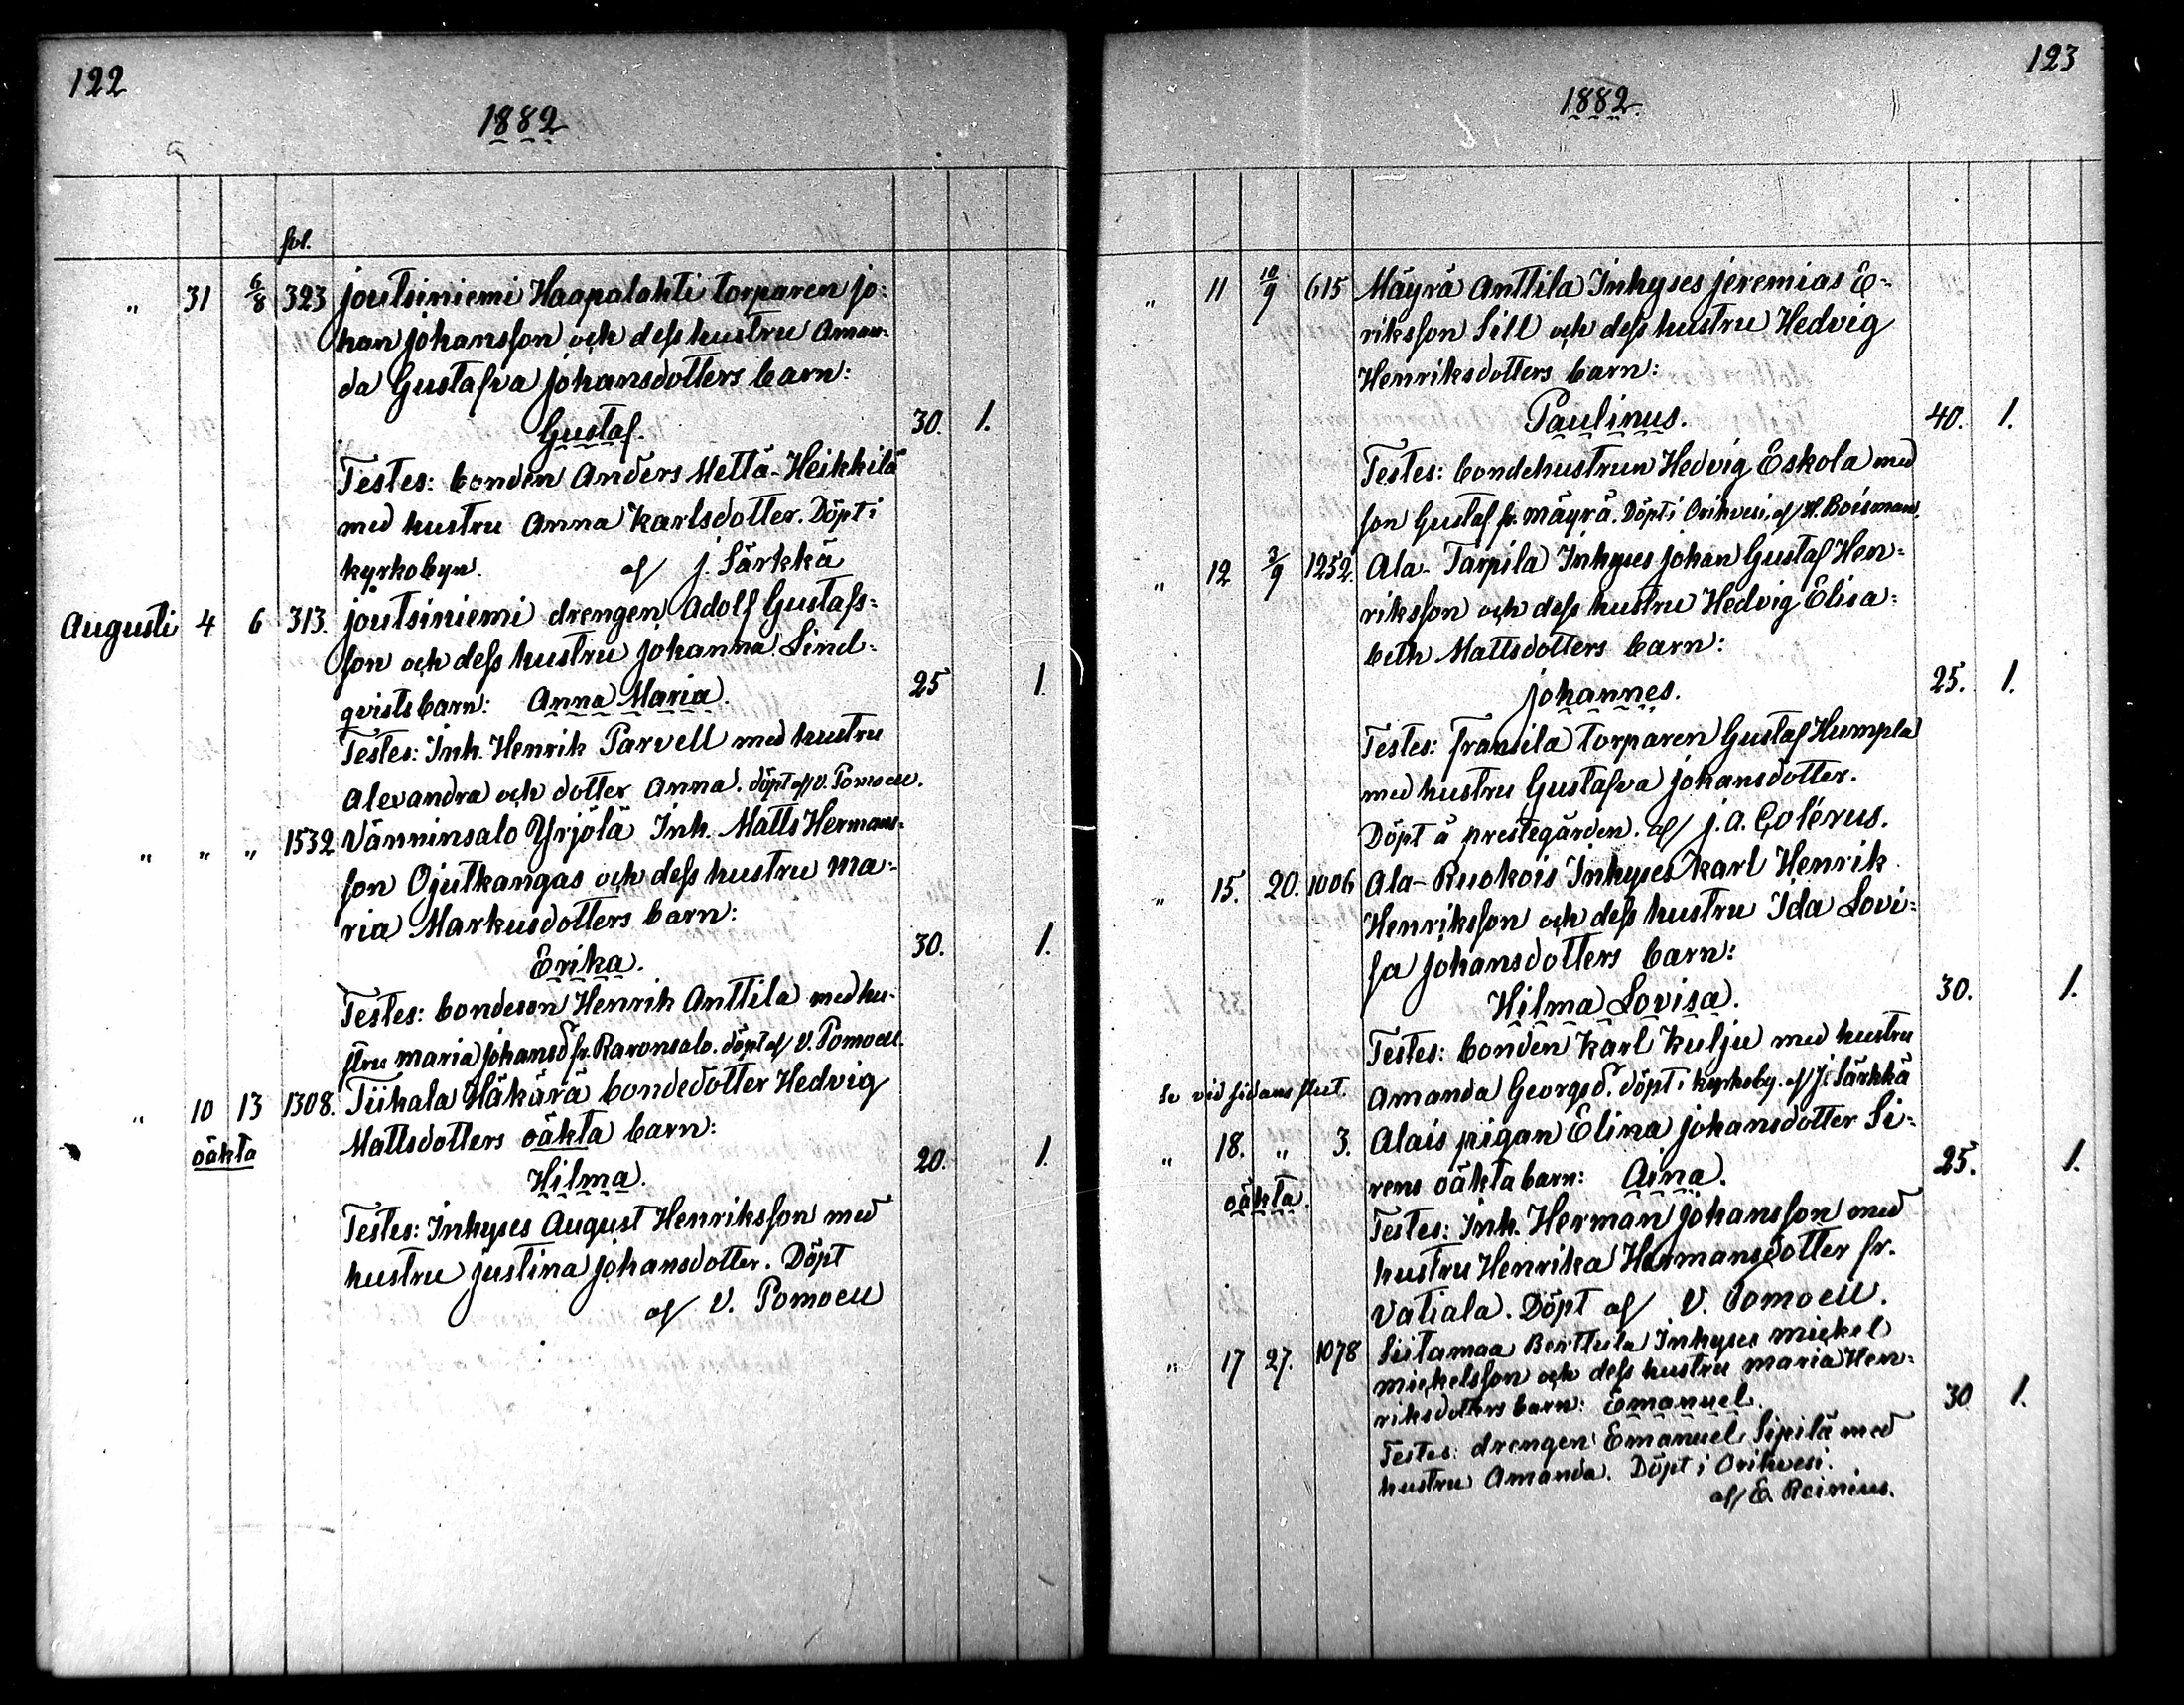 122
1882
fol.
" 31 6/8 323 Joutsiniemi Haapalahti torparen Jo-
han Johansson och dess hustru Aman-
da Gustafva Johansdotters barn:
Gustaf. 30. 1.
Testes: bonden Anders Mettä-Heikkilä
med hustru Anna Karlsdotter. Döpt i
kyrkobyn. af J. Särkkä
Augusti 4 6 313. Joutsiniemi drengen Adolf Gustafs-
son och dess hustru Johanna Lind-
qvists barn: Anna Maria. 25 1.
Testes: Inh. Henrik Parvell med hustru
Alexandra och dotter Anna. döpt af V. Pomoell.
" " " 1532 Vänninsalo Yrjölä Inh. Matts Hermans-
son Ojutkangas och dess hustru Ma-
ria Markusdotters barn:
Erika. 30. 1.
Testes: bondeson Henrik Anttila med hu-
stru Maria Johansd. fr. Raronsalo. döpt af V. Pomoell.
" 10 13 1308. Tiihala Häkärä bondedotter Hedvig
oäkta Mattsdotters oäkta barn:
Hilma. 20. 1.
Testes: Inhyses August Henriksson med
hustru Justina Johansdotter. Döpt
af V. Pomoell
123
1882.
" 11 10/9 615 Mäyrä Anttila Inhyses Jeremias E-
riksson Sill och dess hustru Hedvig
Henriksdotters barn:
Paulinus. 40. 1.
Testes: bondehustrun Hedvig Eskola med
son Gustaf fr. Mäyrä. Döpt i Orihvesi, af H. Boisman.
" 12 3/9 1252. Ala-Tarpila Inhyses Johan Gustaf Hen-
riksson och dess hustru Hedvig Elisa-
beth Mattsdotters barn:
Johannes. 25. 1.
Testes: Fransila torparen Gustaf Humpla
med hustru Gustafva Johansdotter.
Döpt å prestegården. af J. A. Colérus.
" 15. 20. 1006 Ala-Ruokois Inhyses Karl Henrik
Henriksson och dess hustru Ida Lovi-
sa Johansdotters barn:
Hilma Lovisa. 30. 1.
Testes: bonden Karl Kulju med hustru
Se vid sidans slut. Amanda Georgsd. döpt i kyrkoby. af J. Särkkä
" 18. " 3. Alais pigan Elina Johansdotter Si-
oäkta. rens oäkta barn: Aina. 25. 1.
Testes: Inh. Herman Johansson med
hustru Henrika Hermansdotter fr.
Vatiala. Döpt af V. Pomoell.
" 17 27. 1078 Siitamaa Berttula Inhyses Mickel
Mickelsson och dess hustru Maria Hen-
riksdotters barn: Emanuel. 30 1.
Testes: drengen Emanuel Sipilä med
hustru Amanda. Döpt i Orihvesi.
af E. Reinius.